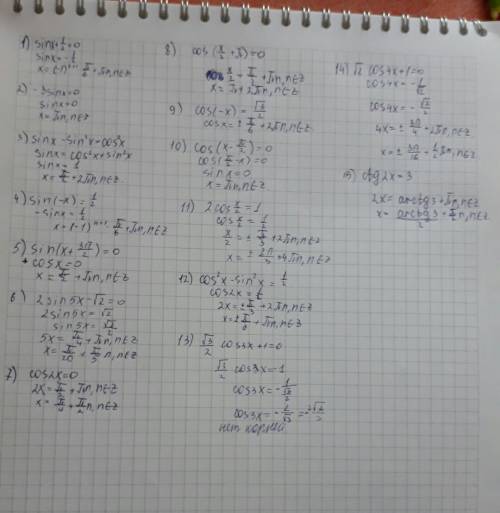 1) sinx+1/2=0
sinx=-1/2
x=(-1)ⁿ⁺¹ π/6+πn, n∈Z
2) -3sinx=0
sinx=0
x=πn, n∈Z
3) sinx-sin²x=cos²x
sinx=cos²x+sin²x
sinx=1
x=π/2+2πn, n∈Z
4) sin(-x)=1/2
-sinx=1/2
x=(-1)ⁿ⁺¹ π/6+πn, n∈Z
5) sin(x+3π/2)=0
cosx=0
x=π/2+πn, n∈Z
6) 2sin5x-√2=0
2sin5x=√2
sin5x=√2/2
5x=π/4+πn, n∈Z
x=π/20+π/5 n, n∈Z
7) cos2x=0
2x=π/2+πn, n∈Z
x=π/4+π/2 n, n∈Z
8) cos(x/2+π)=0
x/2=π/2+πn, n∈Z
x=π+2πn, n∈Z
9) cos(-x)=√3/2
cosx=±π/6+2πn, n∈Z
10) cos(x-π/2)=0
cos(π/2-x)=0
sinx=0
x=πn, n∈Z
11) 2cos x/2=1
cos x/2=1/2
x/2=±π/3+2πn, n∈Z
x=±2π/3+4πn, n∈Z
12) cos²x-sin²x=1/2
cos2x=1/2
2x=±π/3+2πn, n∈Z
x=±π/6+πn, n∈Z
13) √3/2 cos3x+1=0
√3/2 cos3x=-1
cos3x=-1/(√3/2)
нет корней
14) √2 cos4x+1=0
cos4x=-1/√2
cos4x=-√2/2
4x=±3π/4+2πn, n∈Z
x=±3π/16+1/2πn, n∈Z
ctg2x=3
2x=arcctg3+πn, n∈Z
x=arcctg3/2+π/2 n, n∈Z